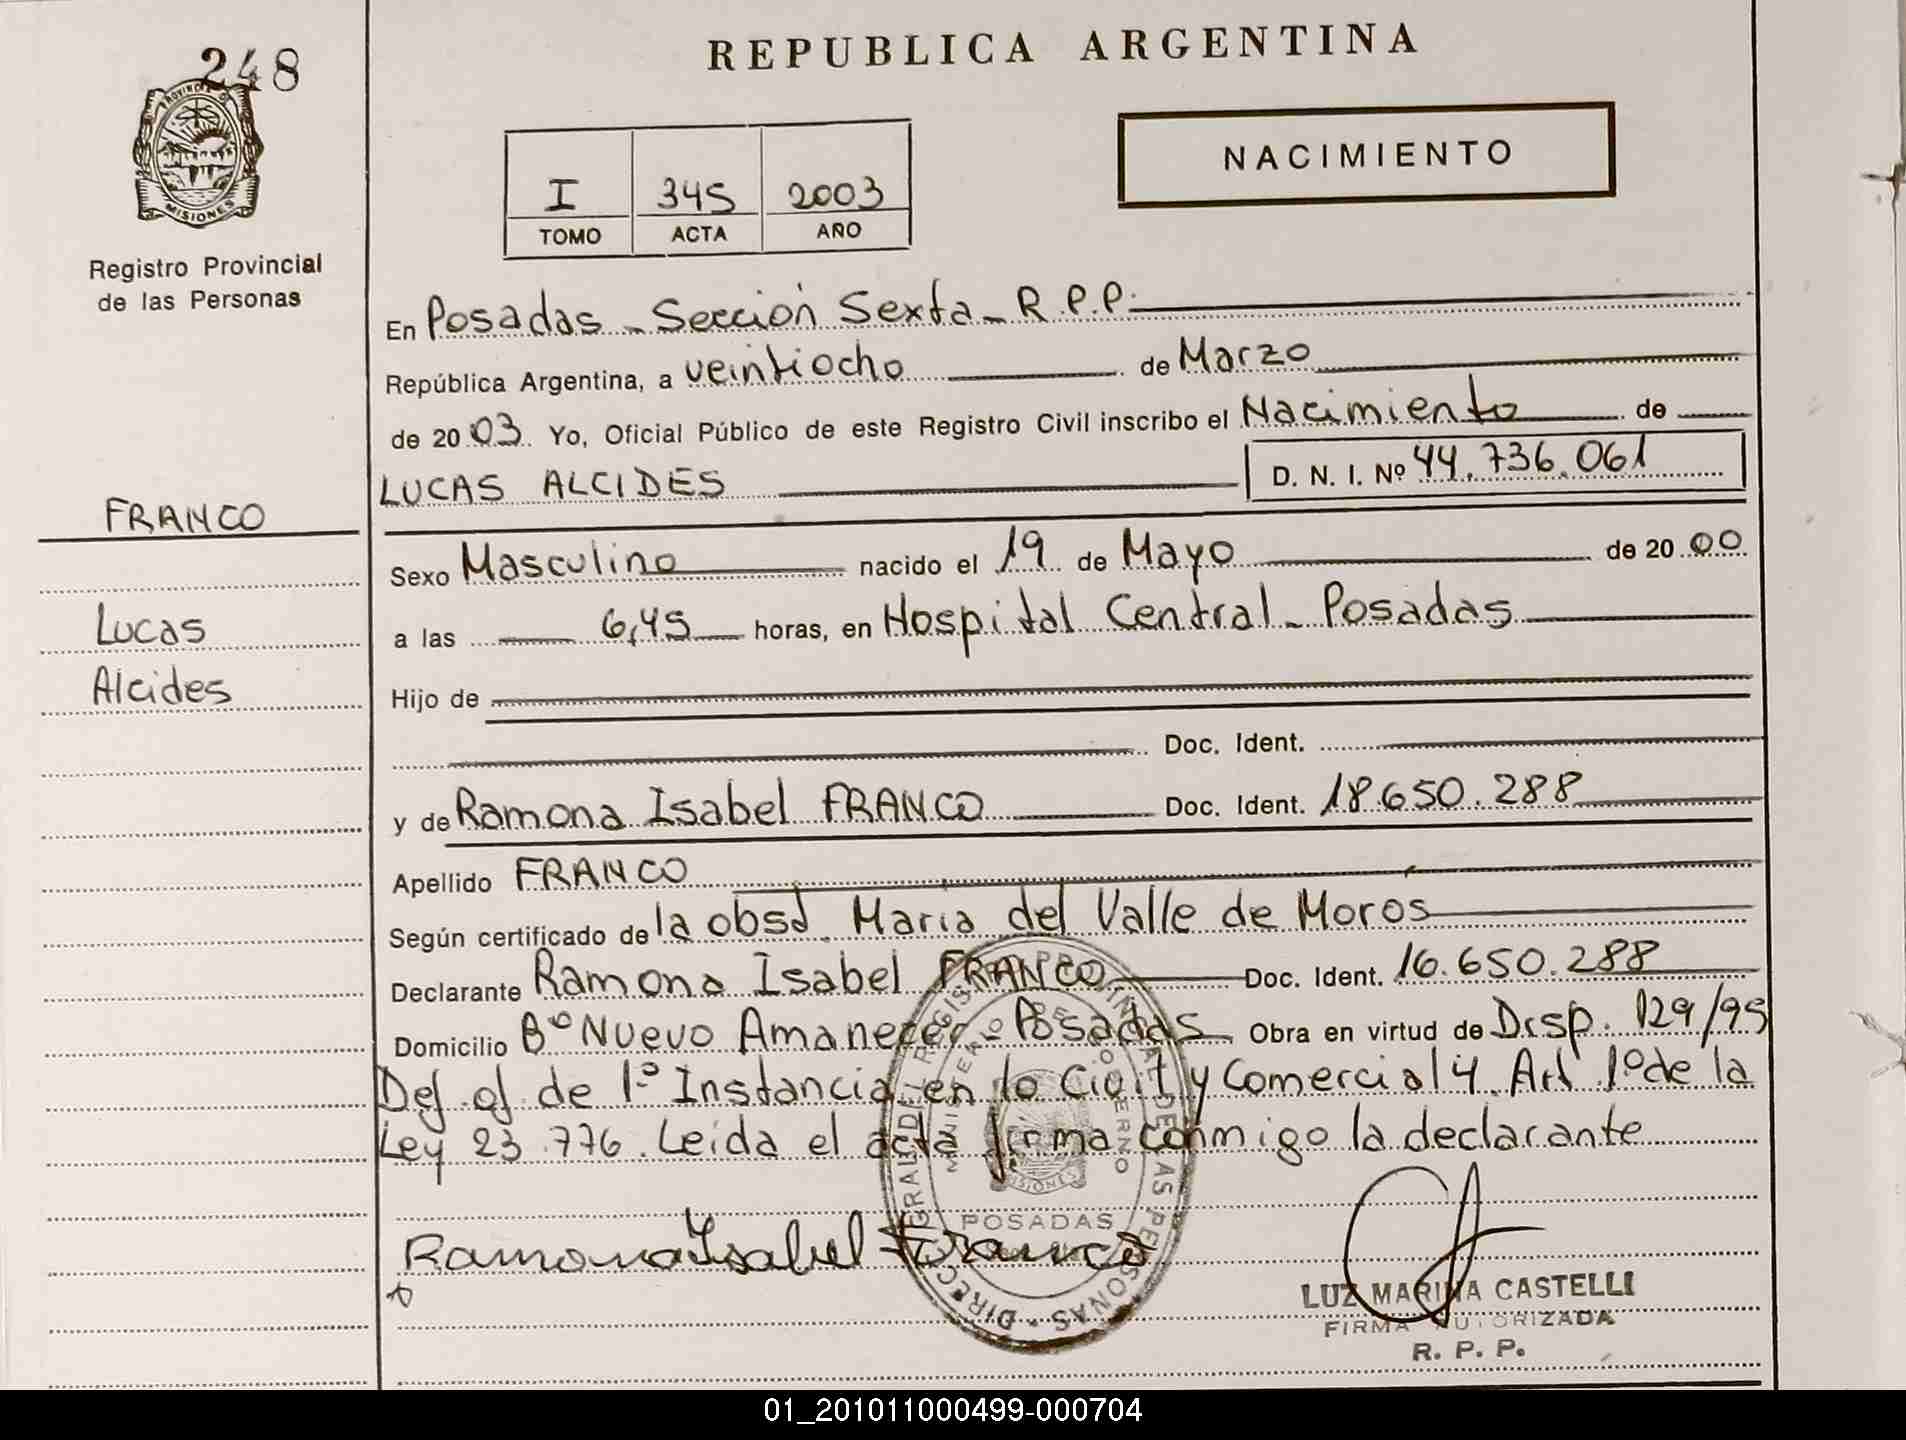 248
PROVINCIA DE
MISIONES
Registro Provincial
de las Personas
FRANCO
Lucas
Alcides
REPUBLICA ARGENTINA
NACIMIENTO
I 345 2003
TOMO ACTA AÑO
En Posadas - Sección Sexta - R.P.P.
República Argentina, a veintiocho de Marzo
de 2003. Yo, Oficial Público de este Registro Civil inscribo el Nacimiento de
LUCAS ALCIDES D. N. I. Nº 44.736.061
Sexo Masculino nacido el 19 de Mayo de 2000
a las 6,45 horas, en Hospital Central - Posadas
Hijo de
Doc. Ident.
y de Ramona Isabel FRANCO Doc. Ident. 18.650.288
Apellido FRANCO
Según certificado de la obst. Maria del Valle de Moros
Declarante Ramona Isabel FRANCO Doc. Ident. 16.650.288
Domicilio Bº Nuevo Amanecer - Posadas Obra en virtud de Disp. 129/95
Def. of. de 1º Instancia en lo Civil y Comercial 4. Art 1º de la
Ley 23.776. Leida el acta firma conmigo la declarante
Ramona Isabel Franco
MINISTERIO DE GOBIERNO
MISIONES
POSADAS
LUZ MARINA CASTELLI
FIRMA AUTORIZADA
R. P. P.
01_201011000499-000704